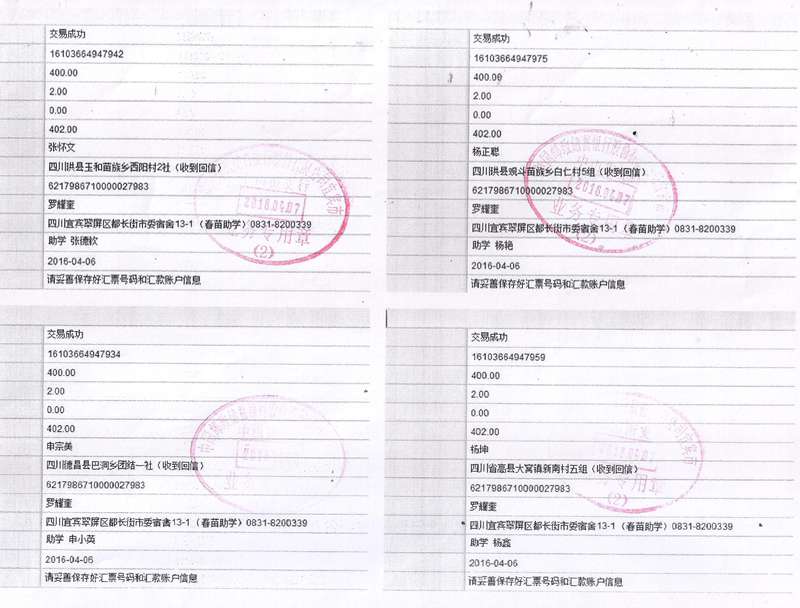 交易成功
16103664947942
400.00
2.00
0.00
402.00
张怀文
四川珙县玉和苗族乡西阳村2社（收到回信）
6217986710000027983
罗耀奎
四川宜宾翠屏区都长街市委宿舍13-1（春苗助学）0831-8200339
助学 张德钦
2016-04-06
请妥善保存好汇票号码和汇款账户信息
2016.04.07
业务专用章
(2)
交易成功
16103664947975
400.00
2.00
0.00
402.00
杨正聪
四川珙县观斗苗族乡白仁村5组（收到回信）
6217986710000027983
罗耀奎
四川宜宾翠屏区都长街市委宿舍13-1（春苗助学）0831-8200339
助学 杨艳
2016-04-06
请妥善保存好汇票号码和汇款账户信息
2016.04.07
业务专用章
(2)
交易成功
16103664947934
400.00
2.00
0.00
402.00
申宗美
四川德昌县巴洞乡团结一社（收到回信）
6217986710000027983
罗耀奎
四川宜宾翠屏区都长街市委宿舍13-1（春苗助学）0831-8200339
助学 申小英
2016-04-06
请妥善保存好汇票号码和汇款账户信息
交易成功
16103664947959
400.00
2.00
0.00
402.00
杨坤
四川省高县大窝镇新南村五组（收到回信）
6217986710000027983
罗耀奎
四川宜宾翠屏区都长街市委宿舍13-1（春苗助学）0831-8200339
助学 杨鑫
2016-04-06
请妥善保存好汇票号码和汇款账户信息
专用章
(2)